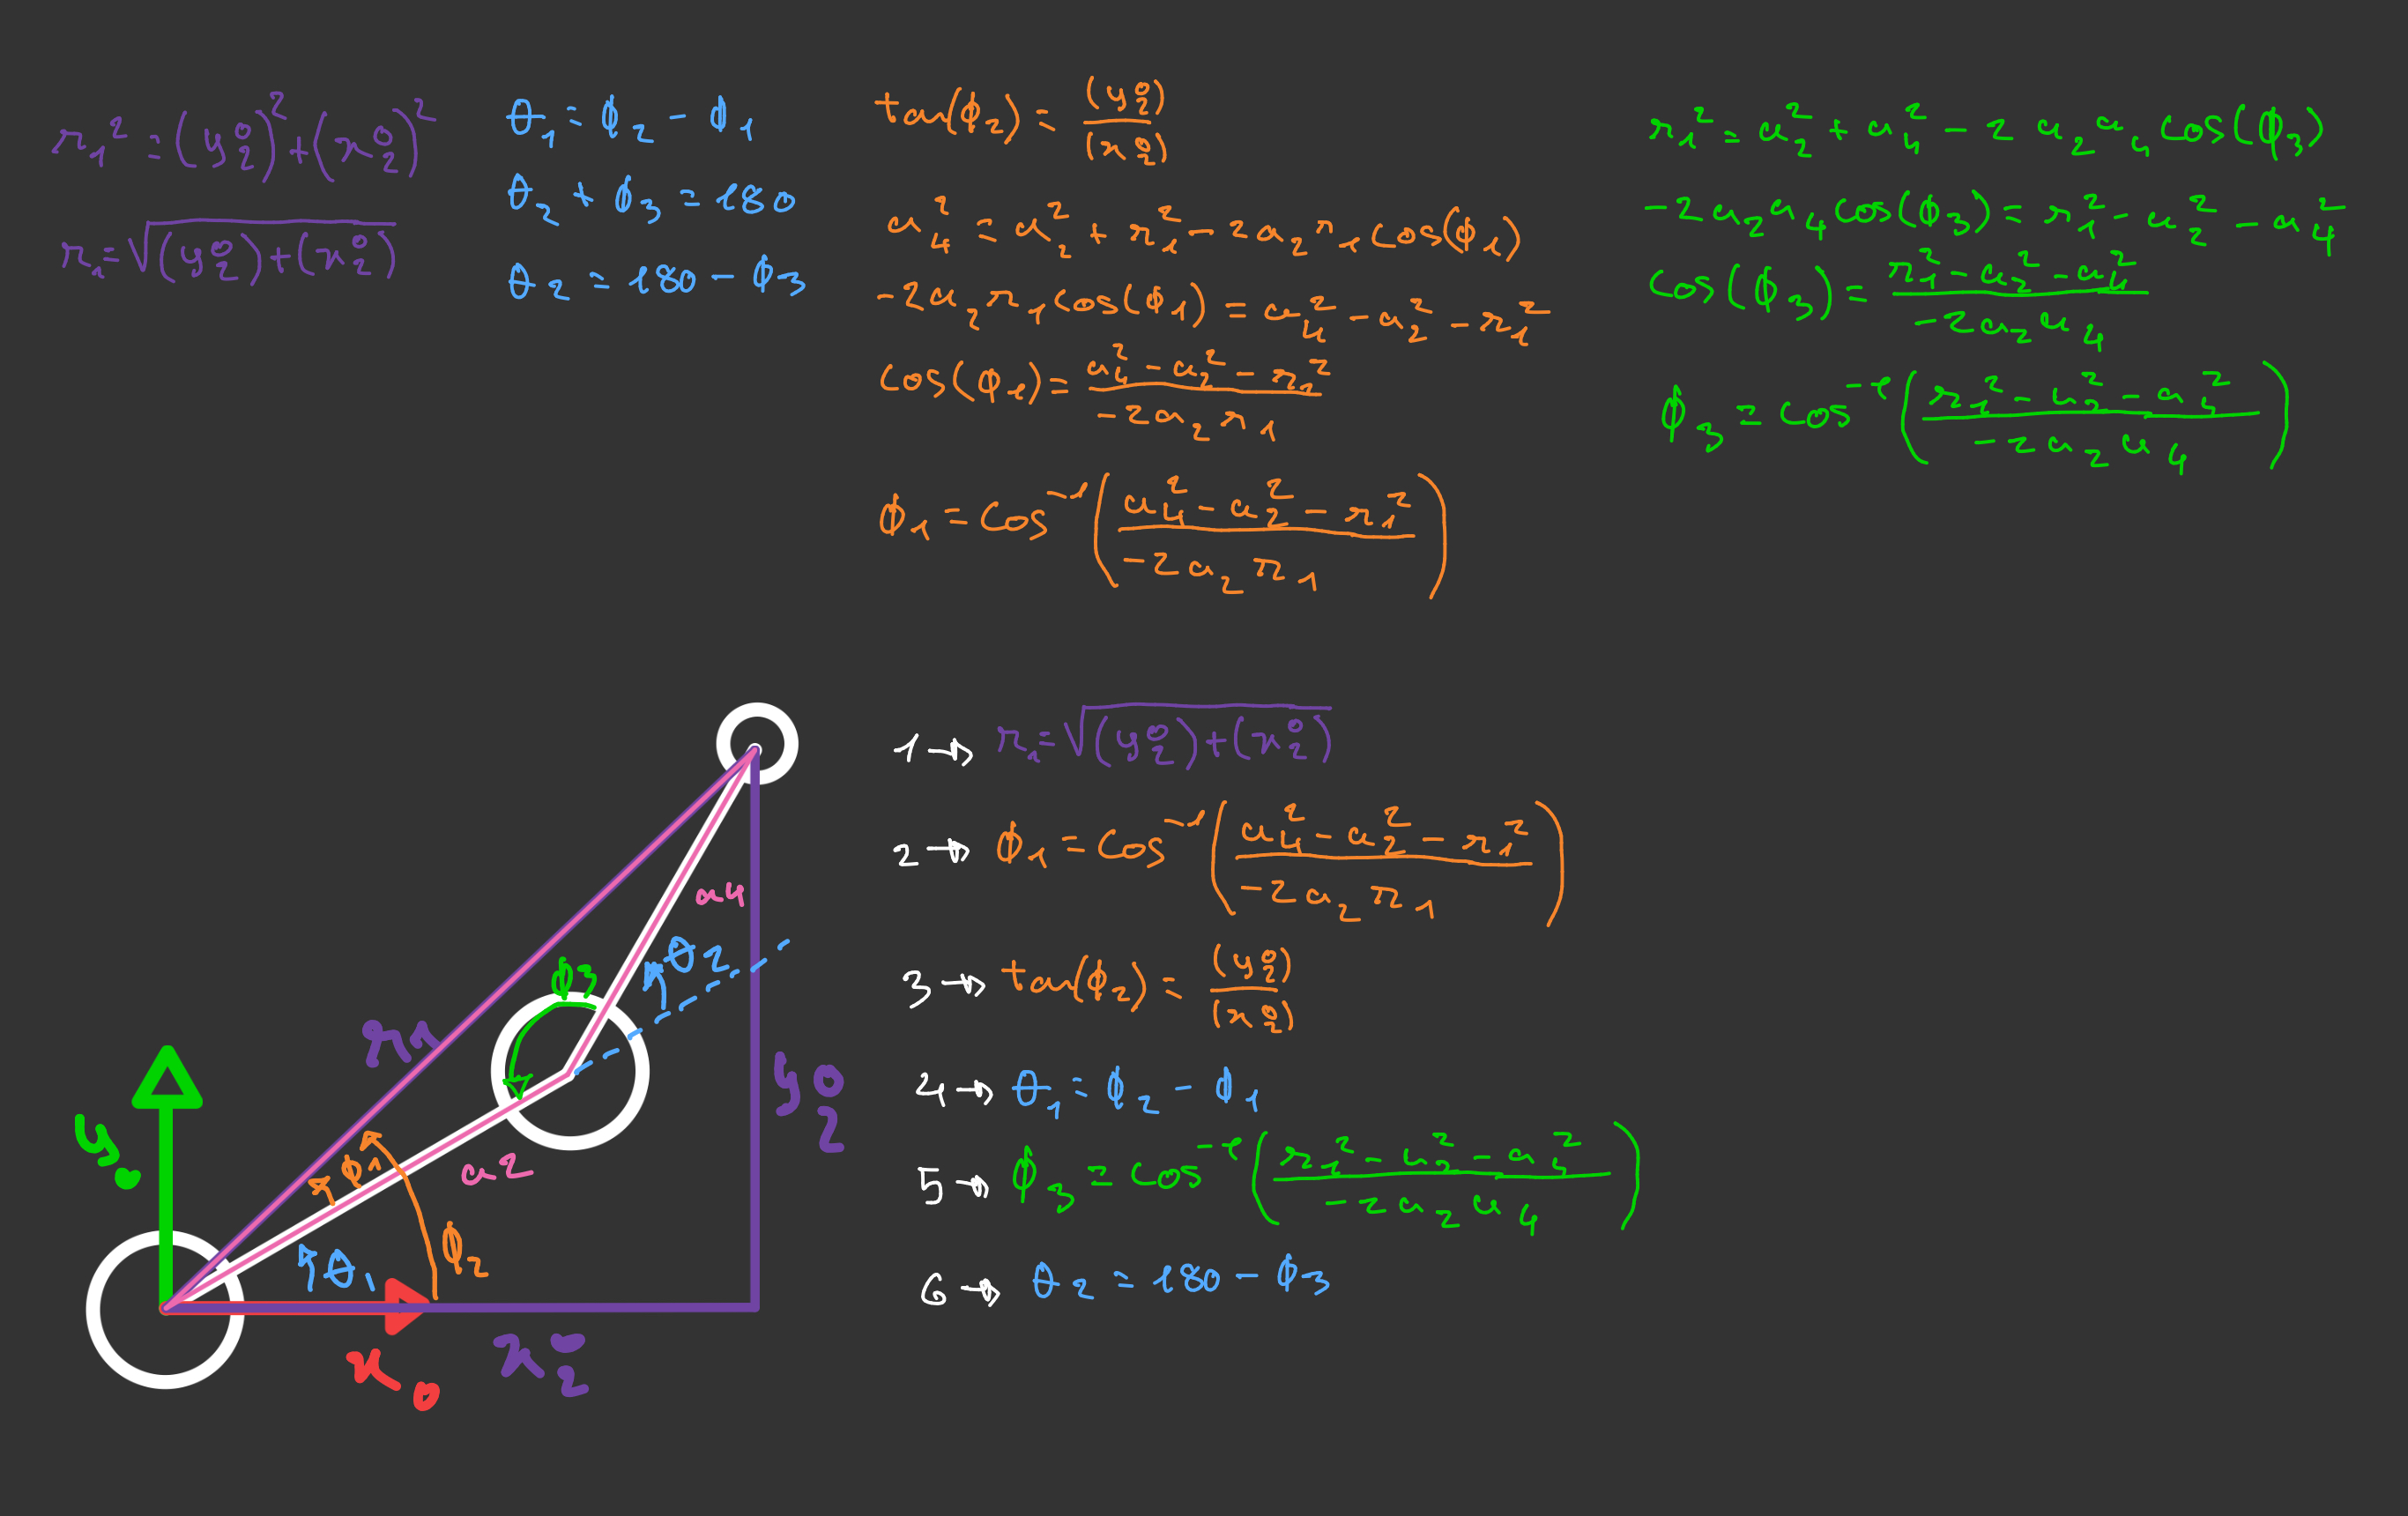 r₁² = (y⁰₂)² + (x⁰₂)²
r₁ = √((y⁰₂) + (x⁰₂))
θ₁ = ϕ₂ - ϕ₁
θ₂ + ϕ₃ = 180
θ₂ = 180 - ϕ₃
tan(ϕ₂) = (y⁰₂)/(x⁰₂)
a₄² = a₂² + r₁² - 2 a₂ r₁ cos(ϕ₁)
-2 a₂ r₁ cos(ϕ₁) = a₄² - a₂² - r₁²
cos(ϕ₁) = (a₄² - a₂² - r₁²)/(-2 a₂ r₁)
ϕ₁ = cos⁻¹((a₄² - a₂² - r₁²)/(-2 a₂ r₁))
r₁² = a₂² + a₄² - 2 a₂ a₄ cos(ϕ₃)
-2 a₂ a₄ cos(ϕ₃) = r₁² - a₂² - a₄²
cos(ϕ₃) = (r₁² - a₂² - a₄²)/(-2 a₂ a₄)
ϕ₃ = cos⁻¹((r₁² - a₂² - a₄²)/(-2 a₂ a₄))
1 → r₁ = √((y⁰₂) + (x⁰₂))
2 → ϕ₁ = cos⁻¹((a₄² - a₂² - r₁²)/(-2 a₂ r₁))
3 → tan(ϕ₂) = (y⁰₂)/(x⁰₂)
4 → θ₁ = ϕ₂ - ϕ₁
5 → ϕ₃ = cos⁻¹((r₁² - a₂² - a₄²)/(-2 a₂ a₄))
6 → θ₂ = 180 - ϕ₃
a4
θ2
ϕ3
r1
y⁰₂
y₀
ϕ1
a2
ϕ2
θ1
x₀
x⁰₂